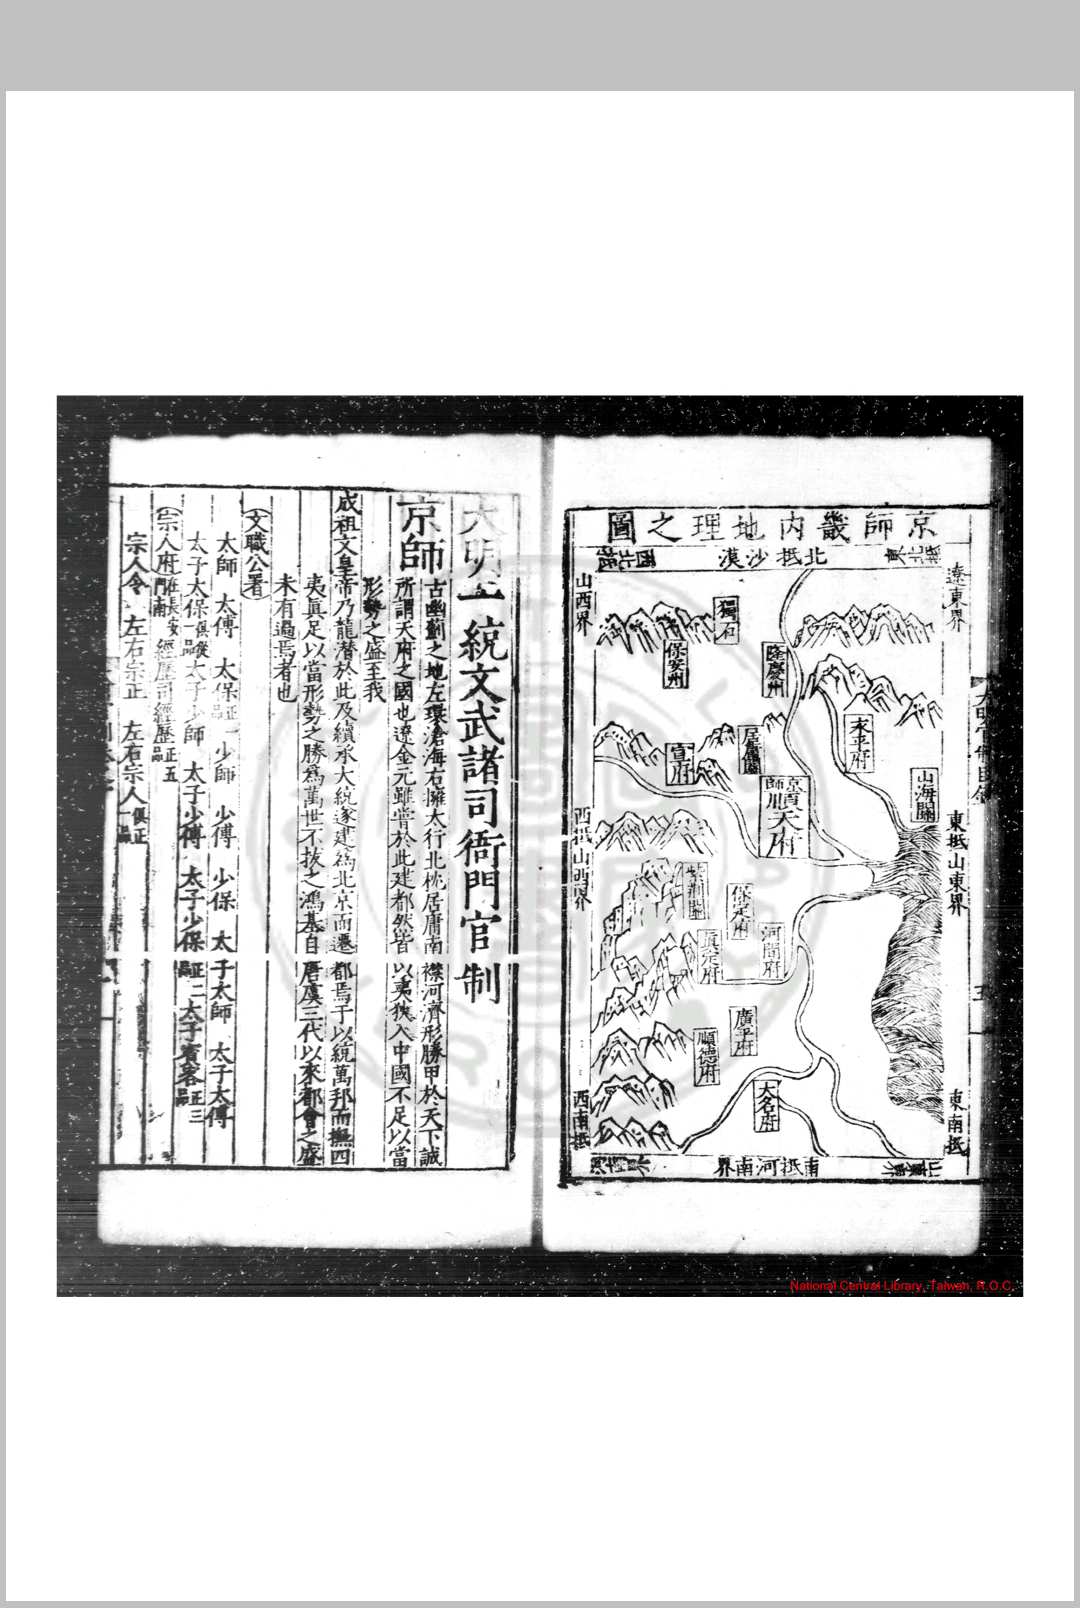 京師畿內地理之圖
北抵沙漠
遼東界
山西界
獨石
保安州
隆慶州
永平府
居庸關
宣府
山海關
京師順天府
東抵山東界
西抵山西界
紫荊關
保定府
河間府
真定府
廣平府
順德府
大名府
東南抵
西南抵
南抵河南界
大明一統文武諸司衙門官制
京師
古幽薊之地左環滄海右擁太行北枕居庸南襟河濟形勝甲於天下誠
所謂天府之國也遼金元雖嘗於此建都然皆以夷狄入中國不足以當
形勢之盛至我
成祖文皇帝乃龍潛於此及纘承大統遂建為北京而遷都焉于以統萬邦而撫四
夷真足以當形勢之勝為萬世不拔之鴻基自唐虞三代以來都會之盛
未有過焉者也
文職公署
太師 太傅 太保正一 少師 少傅 少保 太子太師 太子太傅
太子太保俱從一品太子少師 太子少傅 太子少保正二品太子賓客正三品
宗人府在長安門南 經歷司經歷正五品
宗人令 左右宗正 左右宗人俱正一品
National Central Library, Taiwan, R.O.C.